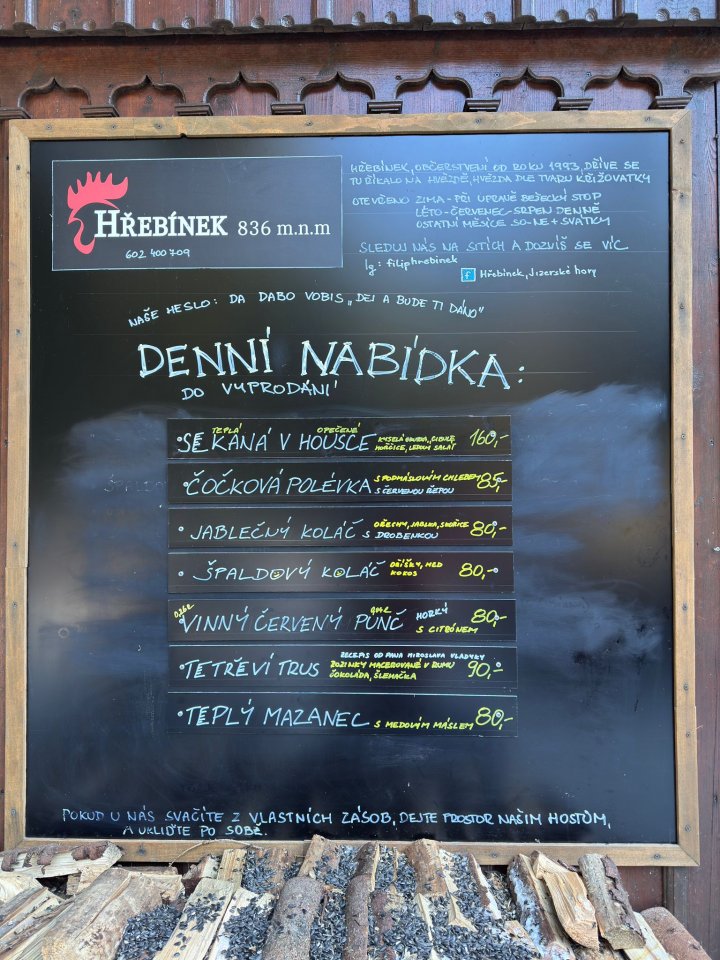 HŘEBÍNEK 836 m.n.m
602 400 709
HŘEBÍNEK, OBČERSTVENÍ OD ROKU 1993, DŘÍVE SE
TU ŘÍKALO NA HVĚZDĚ, HVĚZDA DLE TVARU KŘIŽOVATKY
OTEVŘENO ZIMA - PŘI ÚPRAVĚ BĚŽECKÝ STOP
LÉTO - ČERVENEC - SRPEN DENNĚ
OSTATNÍ MĚSÍCE SO-NE + SVÁTKY
SLEDUJ NÁS NA SÍTÍCH A DOZVÍŠ SE VÍC.
Ig: filiphrebinek
f Hřebínek, Jizerské hory
NAŠE HESLO: DA DABO VOBIS „DEJ A BUDE TI DÁNO"
DENNÍ NABÍDKA:
DO VYPRODÁNÍ
TEPLÁ OPEČENÉ
SEKANÁ V HOUSCE KYSELÁ OKURKA, CIBULE 160,-
HOŘČICE, LEDOVÝ SALÁT
ČOČKOVÁ POLÉVKA S PODMÁSLOVÝM CHLEBEM 85,-
S ČERVENOU ŘEPOU
JABLEČNÝ KOLÁČ OŘECHY, JABLKA, SKOŘICE 80,-
S DROBENKOU
ŠPALDOVÝ KOLÁČ OŘÍŠKY, MED 80,-
KOKOS
VINNÝ ČERVENÝ PUNČ HORKÝ 80,-
S CITRÓNEM
RECEPIS OD PANA MIROSLAVA VLADYKY
TETŘEVÍ TRUS ROZINKY MACEROVANÉ V RUMU 90,-
ČOKOLÁDA, ŠLEHAČKA
TEPLÝ MAZANEC S MEDOVÝM MÁSLEM 80,-
POKUD U NÁS SVAČÍTE Z VLASTNÍCH ZÁSOB, DEJTE PROSTOR NAŠIM HOSTŮM,
A UKLIĎTE PO SOBĚ.